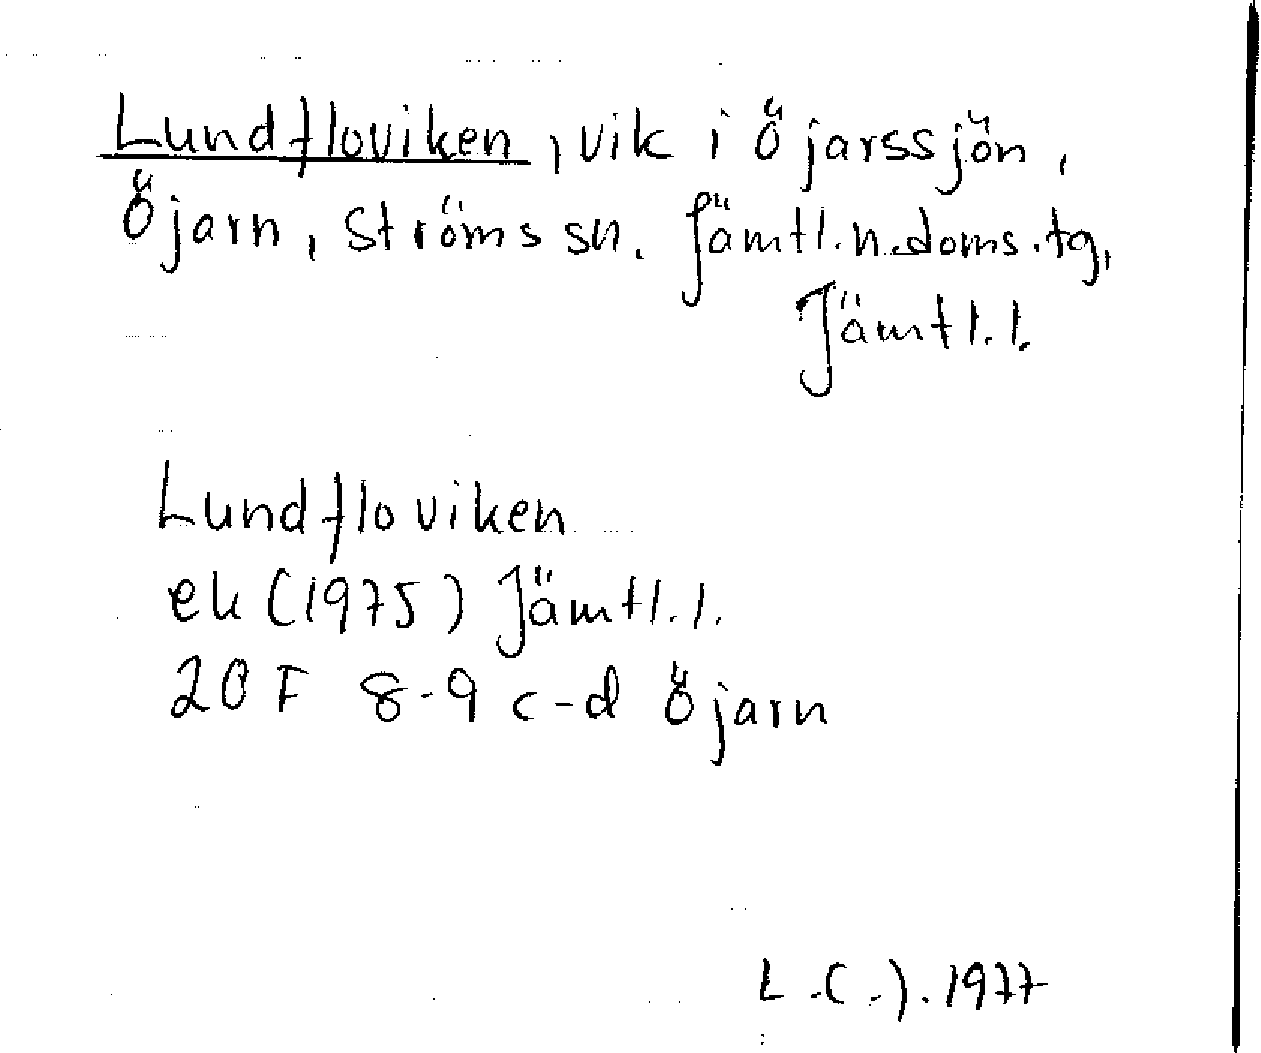 Lundfloviken, vik i Öjarssjön,
Öjarn, Ströms sn. Jämtl.n.doms.tg,
Jämtl.l.
Lundfloviken
ek (1975) Jämtl.l.
20 F 8-9 c-d Öjarn
L.C.J. 1977